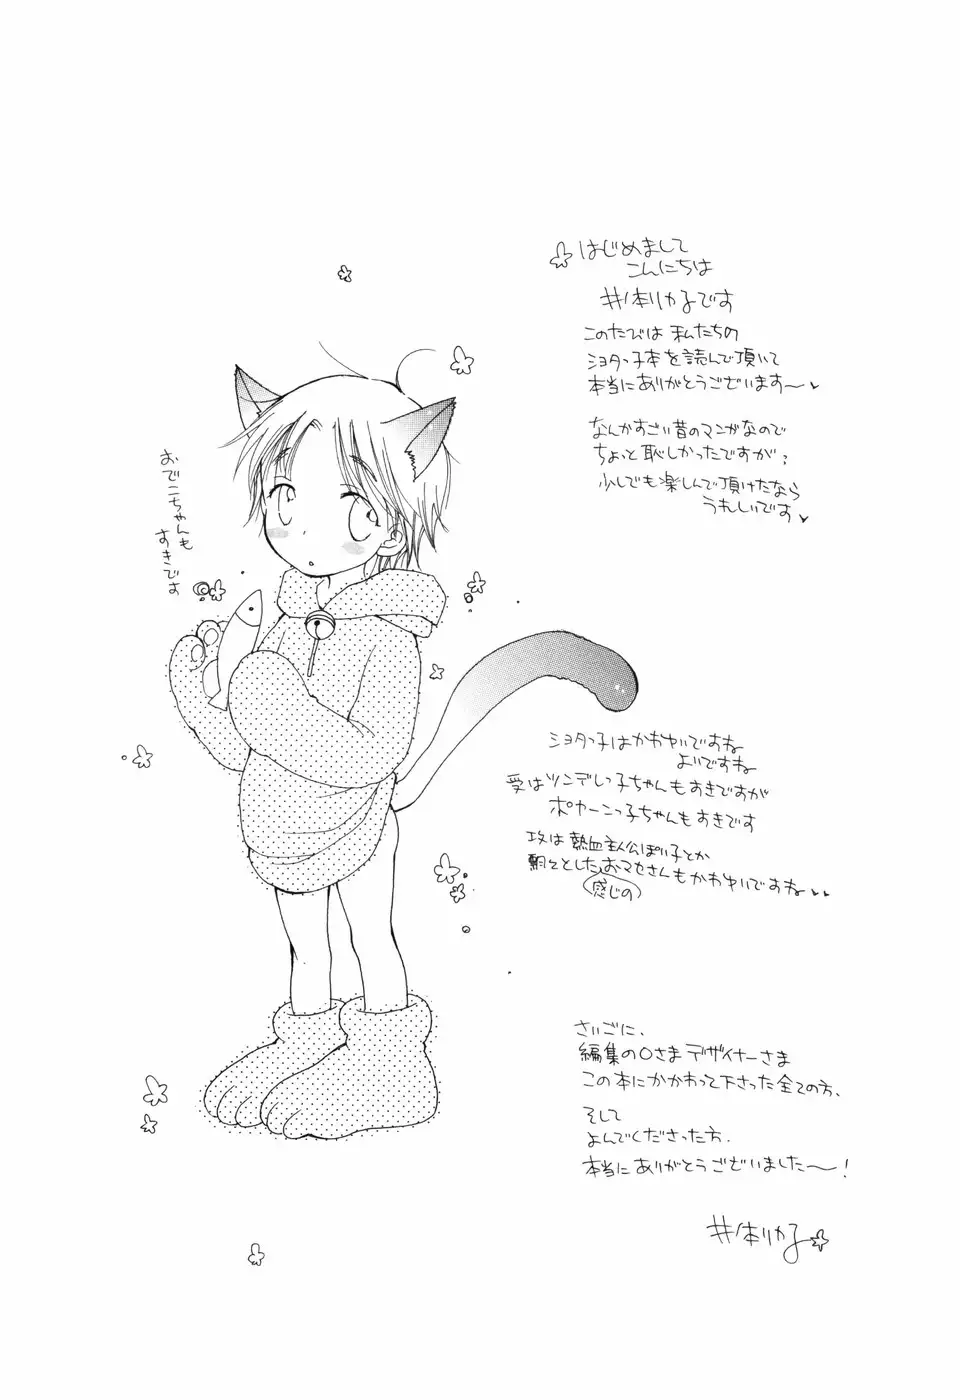 はじめまして
こんにちは
井ノ本リカ子です
このたびは 私たちの
ショタっ子本を読んで頂いて
本当にありがとうございます〜♥
なんかすごい昔のマンガなので
ちょっと恥しかったですが
少しでも楽しんで頂けたなら
うれしいです♥
おでこちゃんも
すきです
ショタっ子はかわゆいですね
よいですね
受はツンデレっ子ちゃんもすきですが
ポカーンっ子ちゃんもすきです
攻は熱血主人公ぽい子とか
とした感じのおマセさんもかわゆいですね♥♥
さいごに、
編集のOさまデザイナーさま
この本にかかわって下さった全ての方、
そして
よんでくださった方、
本当にありがとうございました〜!
井ノ本リカ子